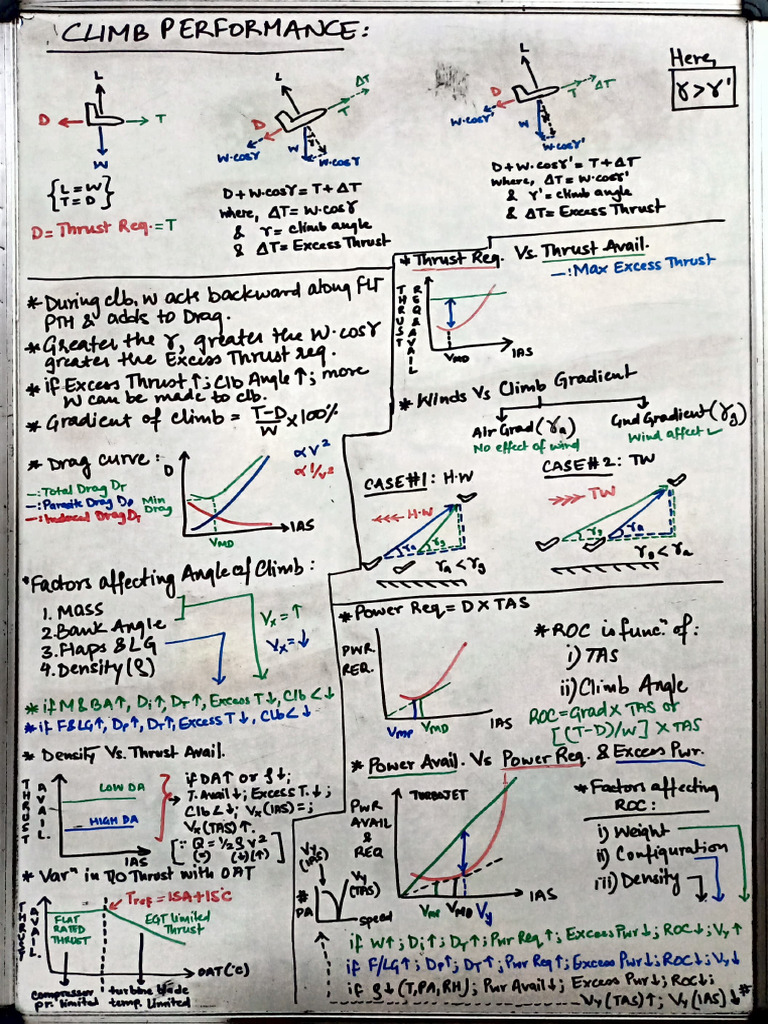 CLIMB PERFORMANCE:
L
D
T
W
{L=W
T=D}
D=Thrust Req.=T
L
ΔT
T
D
W·cosγ
W
W·cosγ
D+W·cosγ=T+ΔT
where, ΔT=W·cosγ
& γ=climb angle
& ΔT=Excess Thrust
L
ΔT
T
D
W·cosγ'
W
W·cosγ'
D+W·cosγ'=T+ΔT
where, ΔT=W·cosγ'
& γ'=climb angle
& ΔT=Excess Thrust
Here,
γ>γ'
* During clb, W acts backward along FLT
PTH & adds to Drag.
* Greater the γ, greater the W·cosγ
greater the Excess Thrust req.
* if Excess Thrust ↑; Clb Angle ↑; more
W can be made to clb.
* Gradient of climb = T-D/W ×100%
* Drag curve:
D
∝V²
∝1/V²
—:Total Drag DT
—:Parasite Drag DP
—:Induced Drag DI
Min
Drag
VMD
IAS
* Factors affecting Angle of Climb:
1. Mass
2. Bank Angle
3. Flaps & LG
4. Density (ρ)
Vx=↑
Vx=↓
* if M&BA↑, Di↑, DT↑, Excess T↓, Clb<↓
* if F&LG↑, DP↑, DT↑, Excess T↓, Clb<↓
* Density Vs. Thrust Avail.
THRUST
AVAIL.
LOW DA
HIGH DA
IAS
if DA↑ or ρ↓;
T. Avail↓; Excess T.↓;
Clb<↓; Vx(IAS)=;
Vx(TAS)↑.
[∵ Q=½ρV²]
(=) (↓)(↑)
* Varⁿ in TO Thrust with OAT
THRUST
AVAIL.
Tref=ISA+15°C
FLAT
RATED
THRUST
EGT Limited
Thrust
OAT(°C)
compressor
pr. limited
turbine blade
temp. limited
* Thrust Req. Vs Thrust Avail.
—:Max Excess Thrust
THRUST
REQ & AVAIL
VMD
IAS
* Winds Vs Climb Gradient
Air Grad(γa)
No effect of wind
Gnd Gradient(γg)
Wind affect ✓
CASE#1: H·W
H·W
γa
γg
γa<γg
CASE#2: TW
TW
γg
γa
γg<γa
* Power Req = D×TAS
PWR.
REQ.
VMP
VMD
IAS
* ROC is func.ⁿ of:
i) TAS
ii) Climb Angle
ROC=Grad×TAS or
[(T-D)/W]×TAS
* Power Avail. Vs Power Req. & Excess Pwr.
PWR
AVAIL
&
REQ
TURBOJET
VMP
VMD
Vy
IAS
* Factors affecting
ROC:
i) Weight
ii) Configuration
iii) Density
Vy
(IAS)
Vy
(TAS)
* PA
Speed
if W↑; Di↑; DT↑; Pwr Req↑; Excess Pwr↓; ROC↓; Vy↑
if F/LG↑; DP↑; DT↑; Pwr Req↑; Excess Pwr↓; ROC↓; Vy↓
if ρ↓(T,PA,RH); Pwr Avail↓; Excess Pwr↓; ROC↓;
Vy(TAS)↑; Vy(IAS)↓*